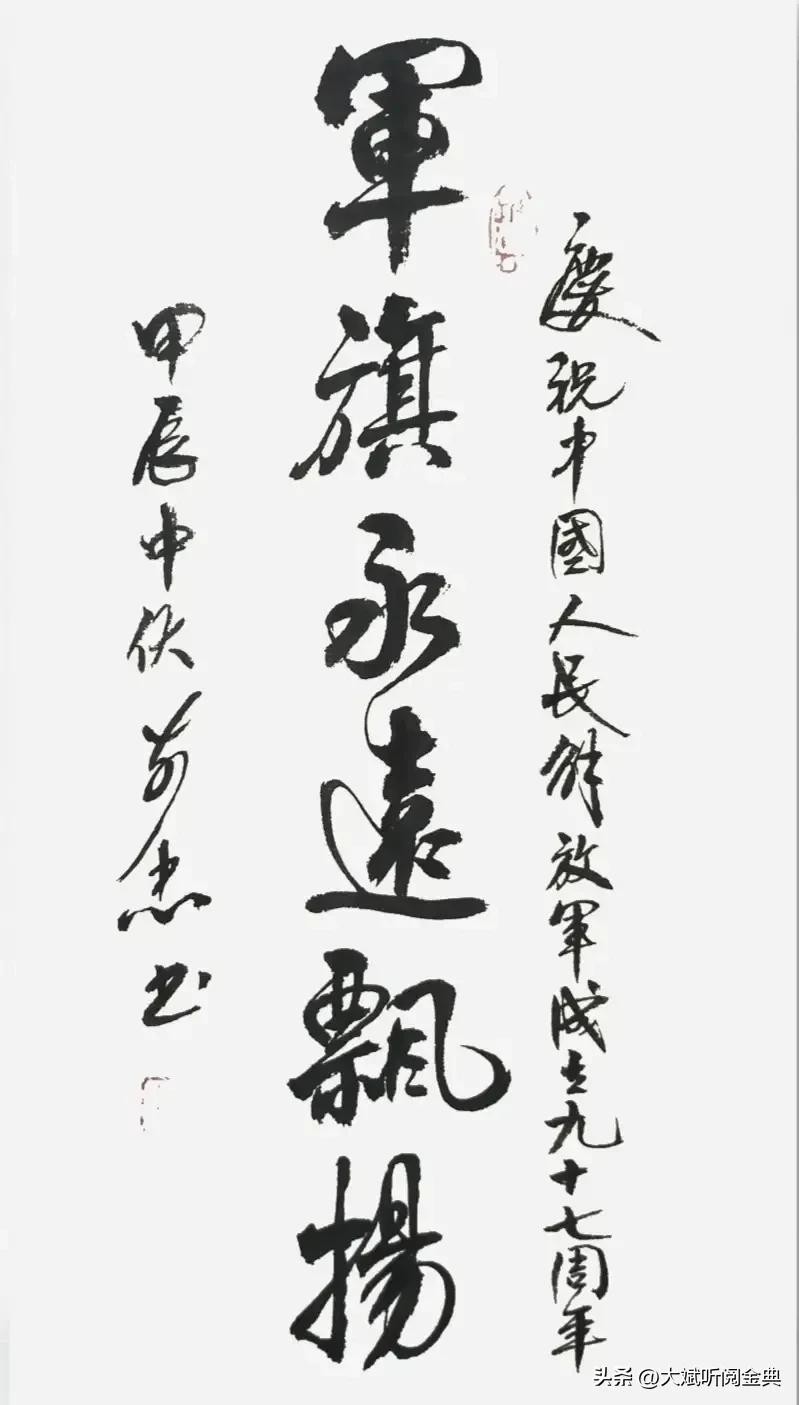 慶祝中國人民解放軍成立九十七周年
軍旗永遠飄揚
甲辰中伏 書
头条 @大斌听阅金典